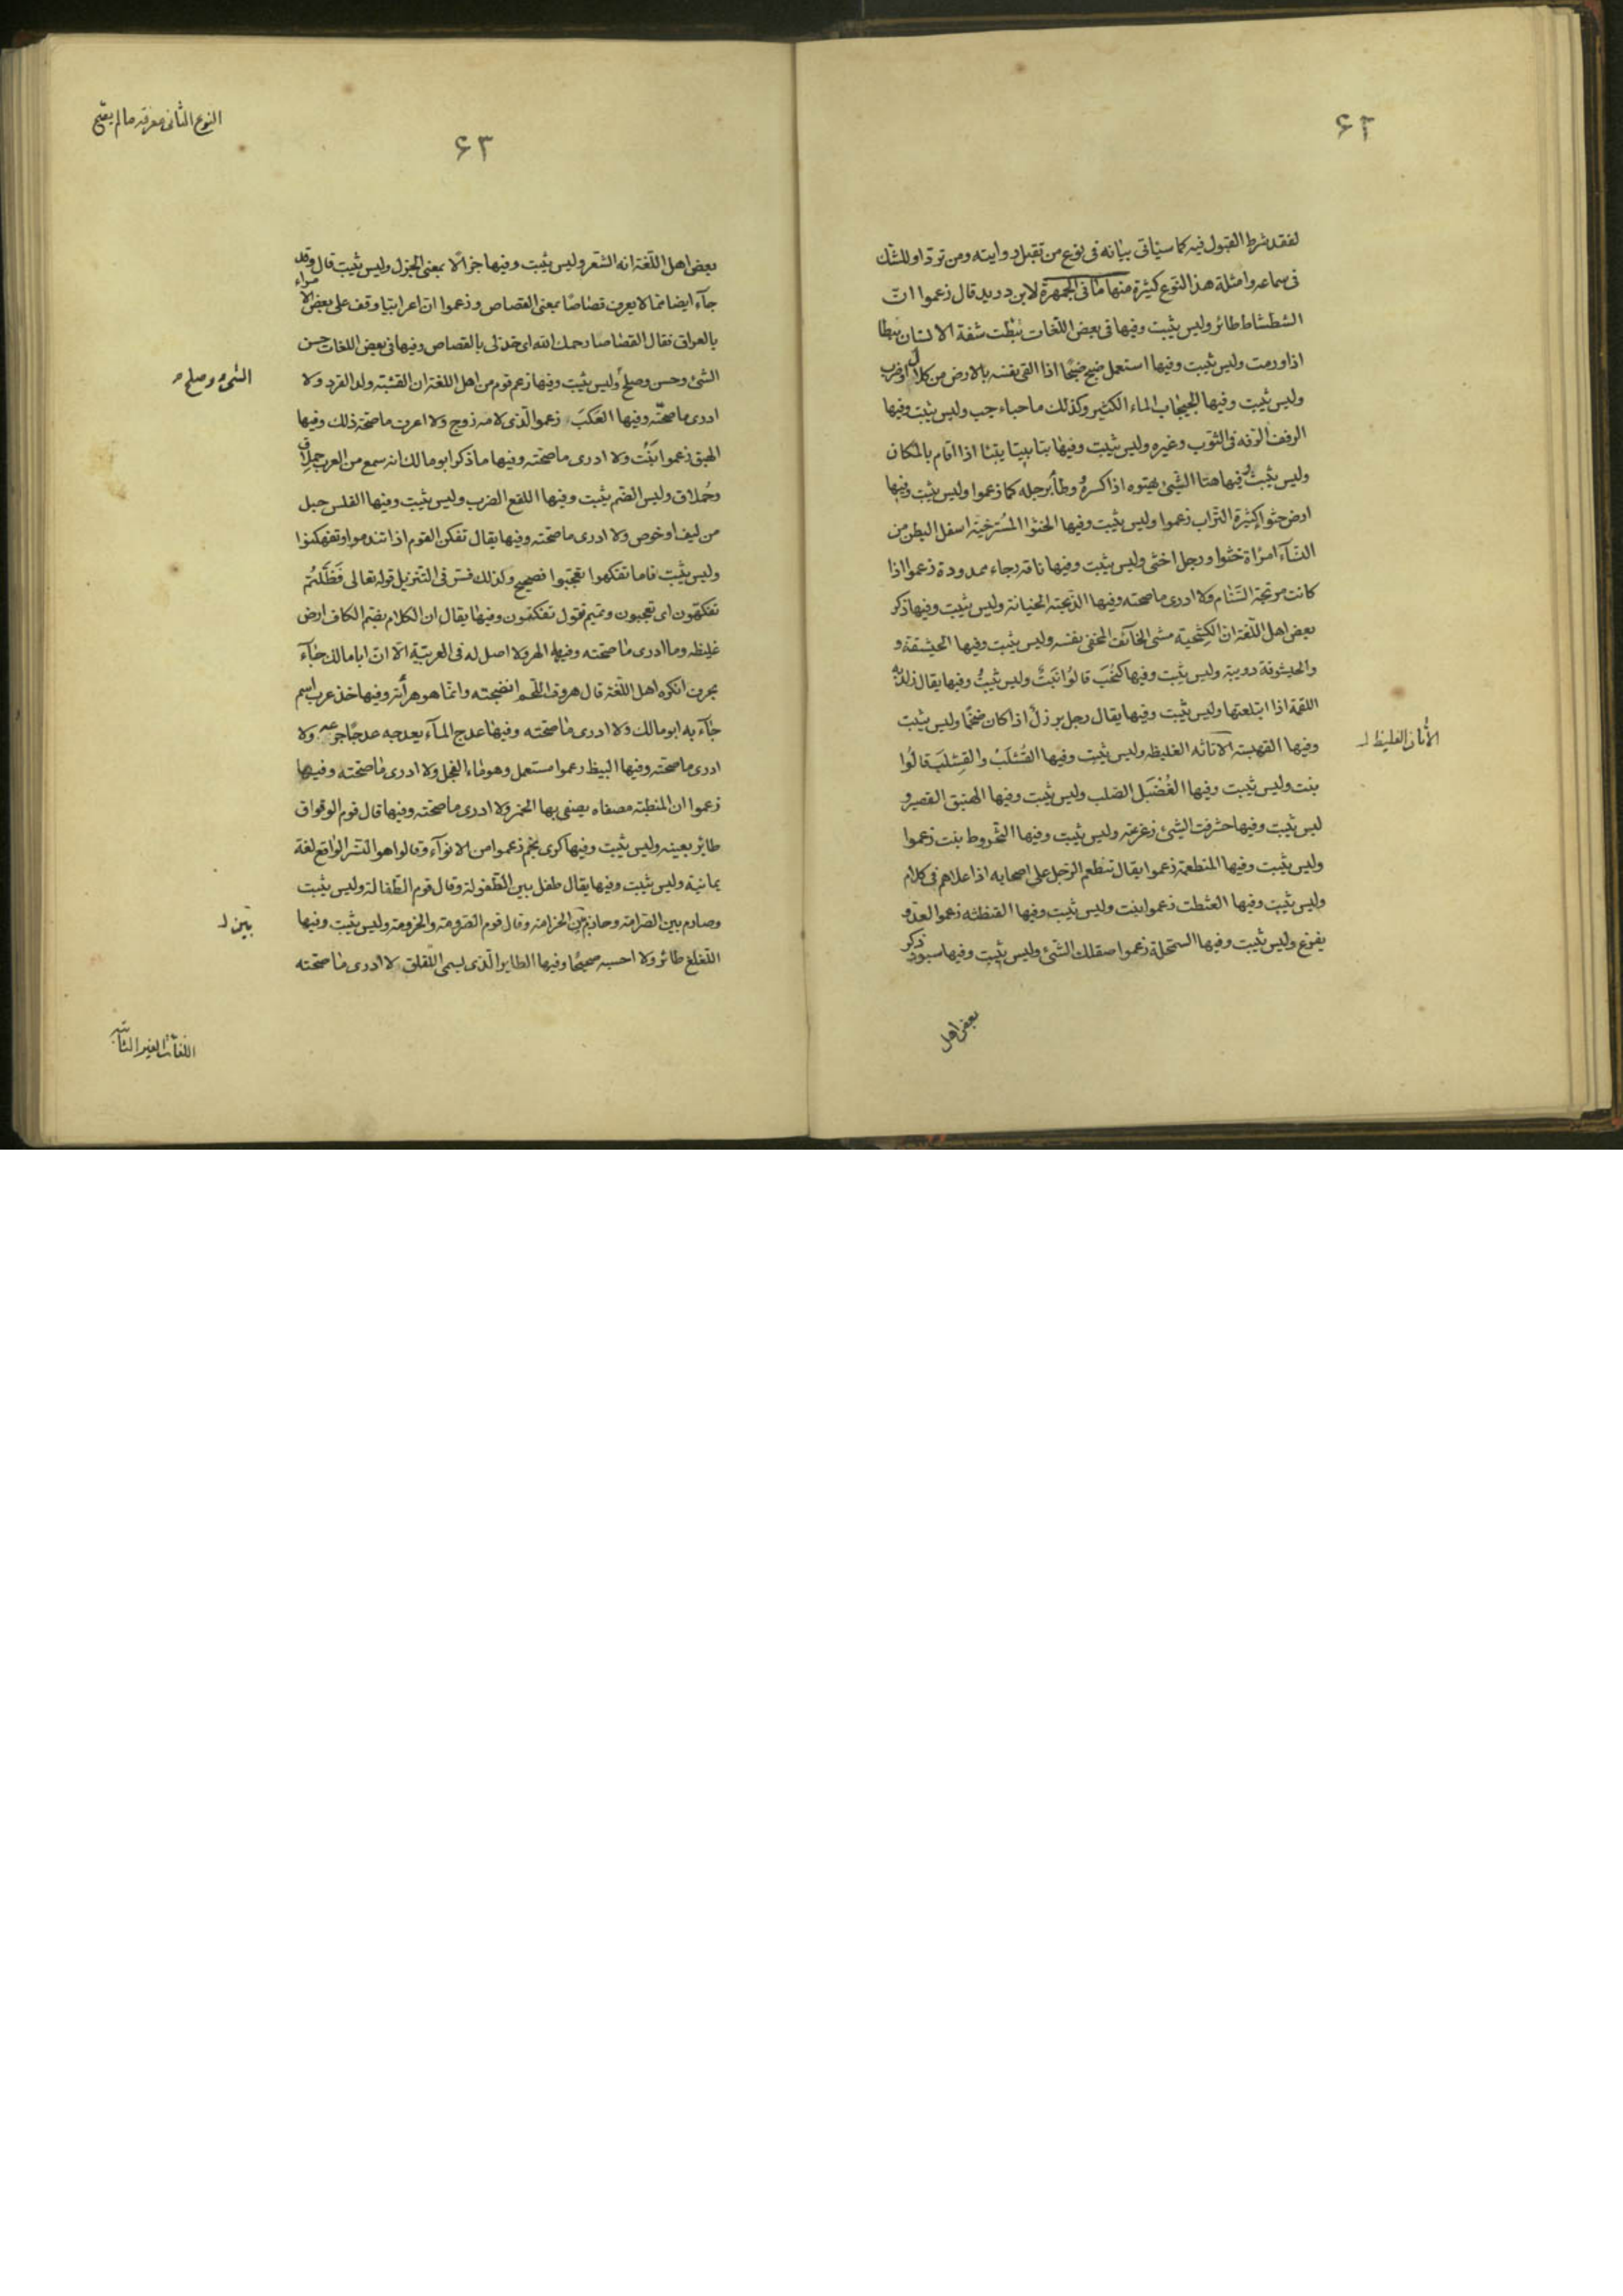 ۶۲
لفقد شرط القبول فيه كما سياتى بيانه فى نوع من تقبل روايته ومن ترد او للشك
فى سماعه وامثلة هذا النوع كثيرة منها ما فى الجمهرة لابن دريد قال زعموا انّ
الشطشاط طائر وليس بثبت وفيها فى بعض اللغات ثبطت شفة الانسان ثبطا
اذا ورمت وليس بثبت وفيها استعمل ضبح ضبحًا اذا القى نفسه بالارض من كلال او ضرب
وليس بثبت وفيها الجبجاب الماء الكثير وكذلك ماء جباجب وليس بثبت وفيها
الرفف الرقة فى الثوب وغيره وليس بثبت وفيها بتا يبتا بتئا اذا اقام بالمكان
وليس بثبت وفيها هتا الشىء يهتوه اذا كسره وطأ برجله كما زعموا وليس بثبت وفيها
ارض حثواء كثيرة التراب زعموا وليس بثبت وفيها الخثوا المسترخية اسفل البطن من
النسآء امراة خثوا ورجل اخثى وليس بثبت وفيها ناقة رجاء ممدودة زعموا اذا
كانت مرتجة السنام ولا ادرى ما صحته وفيها الخيانة وليس بثبت وفيها ذكر
بعض اهل اللغة ان الكشحية مشى الخآئف المخفى نفسه وليس بثبت وفيها الحيشقة و
والحيشوقة دويبة وليس بثبت وفيها كنخب قالوا نبت وليس بثبت وفيها يقال زلدبه
اللقمة اذا ابتلعتها وليس بثبت وفيها يقال رجل برزل اذا كان ضخمًا وليس بثبت
وفيها القهبسة الاتانه الغليظه وليس بثبت وفيها القشلب والقشلب قالوا
نبت وليس بثبت وفيها الغضبل الصلب وليس بثبت وفيها الهنبق القصير و
ليس بثبت وفيها حثرفت الشىء زعزعته وليس بثبت وفيها الثخروط نبت زعموا
وليس بثبت وفيها المنطعمة زعموا يقال تنطعم الرجل على اصحابه اذا علاهم فى كلام
وليس بثبت وفيها العثطت زعموا نبت وليس بثبت وفيها القنطثه زعموا العدو
بفزع وليس بثبت وفيها السحلة زعموا صقلك الشىء وليس بثبت وفيها سبود ذكر
الأتان الغليظ
بعض اهل
النوع الثانى معرفة ما لم يصح
۶۳
بعض اهل اللغة انه الشعر وليس بثبت وفيها جزالا بمعنى الجزل وليس بثبت قال وقد
جآء ايضا مما لا يعرف قصاصا بمعنى القصاص وزعموا ان اعرابيا وقف على بعض الامراء
بالعراق فقال القصاصا رحمك الله اى خذ لى بالقصاص وفيها فى بعض اللغات حسن
الشئ وحسن وصلح وليس بثبت وفيها زعم قوم من اهل اللغة ان القشبة ولد القرد ولا
ادرى ما صحته وفيها العكب زعموا الذى لامه زوج ولا اعرف ما صحة ذلك وفيها
الهبق زعموا نبت ولا ادرى ما صحته وفيها ما ذكر ابو مالك انه سمع من العرب حملاق
وحُملاق وليس الضم بثبت وفيها اللفع الضرب وليس بثبت وفيها الفلس حبل
من ليف او خوص ولا ادرى ما صحته وفيها يقال تفكن القوم اذا تندموا وتفهكنوا
وليس بثبت فاما تفكهوا تعجبوا فصيح وكذلك فسر فى التنزيل قوله تعالى فَظَلتُم
تفكهون اى تعجبون وتميم تقول تفكنون وفيها يقال ان الكلام بضم الكاف ارض
غليظه وما ادرى ما صحته وفيها الهرو لا اصل له فى العربية الا ان ابا مالك جآء
بحرف انكره اهل اللغة قال هروت اللحم انضجته وانما هو هرأته وفيها خذعرب اسم
جآء به ابو مالك ولا ادرى ما صحته وفيها عدج المآء يعدجه عدجًا جرعه ولا
ادرى ما صحته وفيها البيظ زعموا مستعمل وهو ماء الفحل ولا ادرى ما صحته وفيها
زعموا ان المنطبة مصفاه يصفى بها الخمر ولا ادرى ما صحته وفيها قال قوم الوقواق
طائر بعينه وليس بثبت وفيها كرى نجم زعموا من الانوآء وقالوا هو النسر الواقع لغة
يمانية وليس بثبت وفيها يقال طفل بين الطفولة وقال قوم الطفالة وليس بثبت
وصارم بين الصرامة وحازم بين الحزامة وقال قوم الصرومة والحزومة وليس بثبت وفيها
اللغلغ طائر ولا احسبه صحيحًا وفيها الطاير الذى يسمى اللقلق لا ادرى ما صحته
الشىء وصلح
بين
اللغات الغير الثابتة